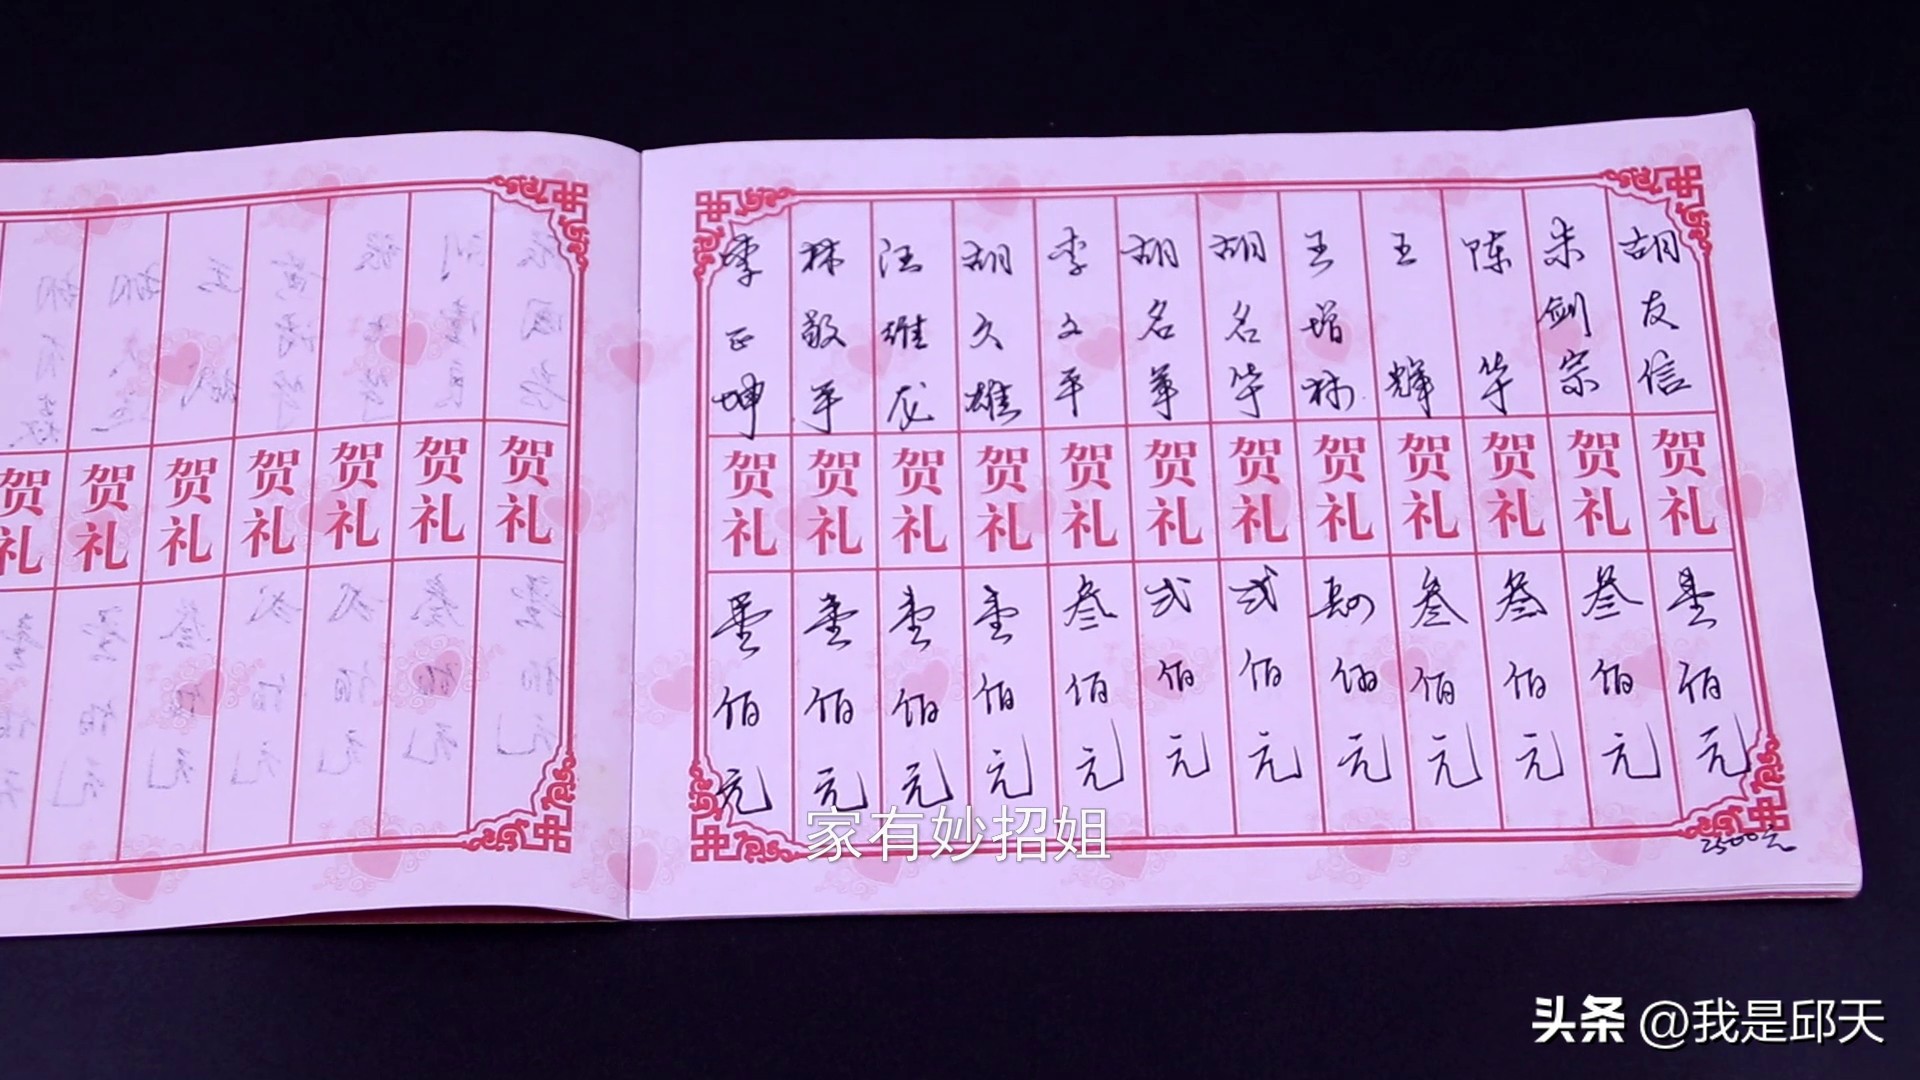 胡友信 贺礼 壹佰元
朱剑宗 贺礼 叁佰元
陈华 贺礼 叁佰元
王辉 贺礼 叁佰元
王增林 贺礼 肆佰元
胡名华 贺礼 弍佰元
胡名军 贺礼 弍佰元
李文平 贺礼 叁佰元
胡久雄 贺礼 壹佰元
汪维龙 贺礼 壹佰元
林敬平 贺礼 壹佰元
李正坤 贺礼 壹佰元
2500元
贺礼
贺礼
贺礼
贺礼
贺礼
贺礼
贺礼
家有妙招姐
头条 @我是邱天